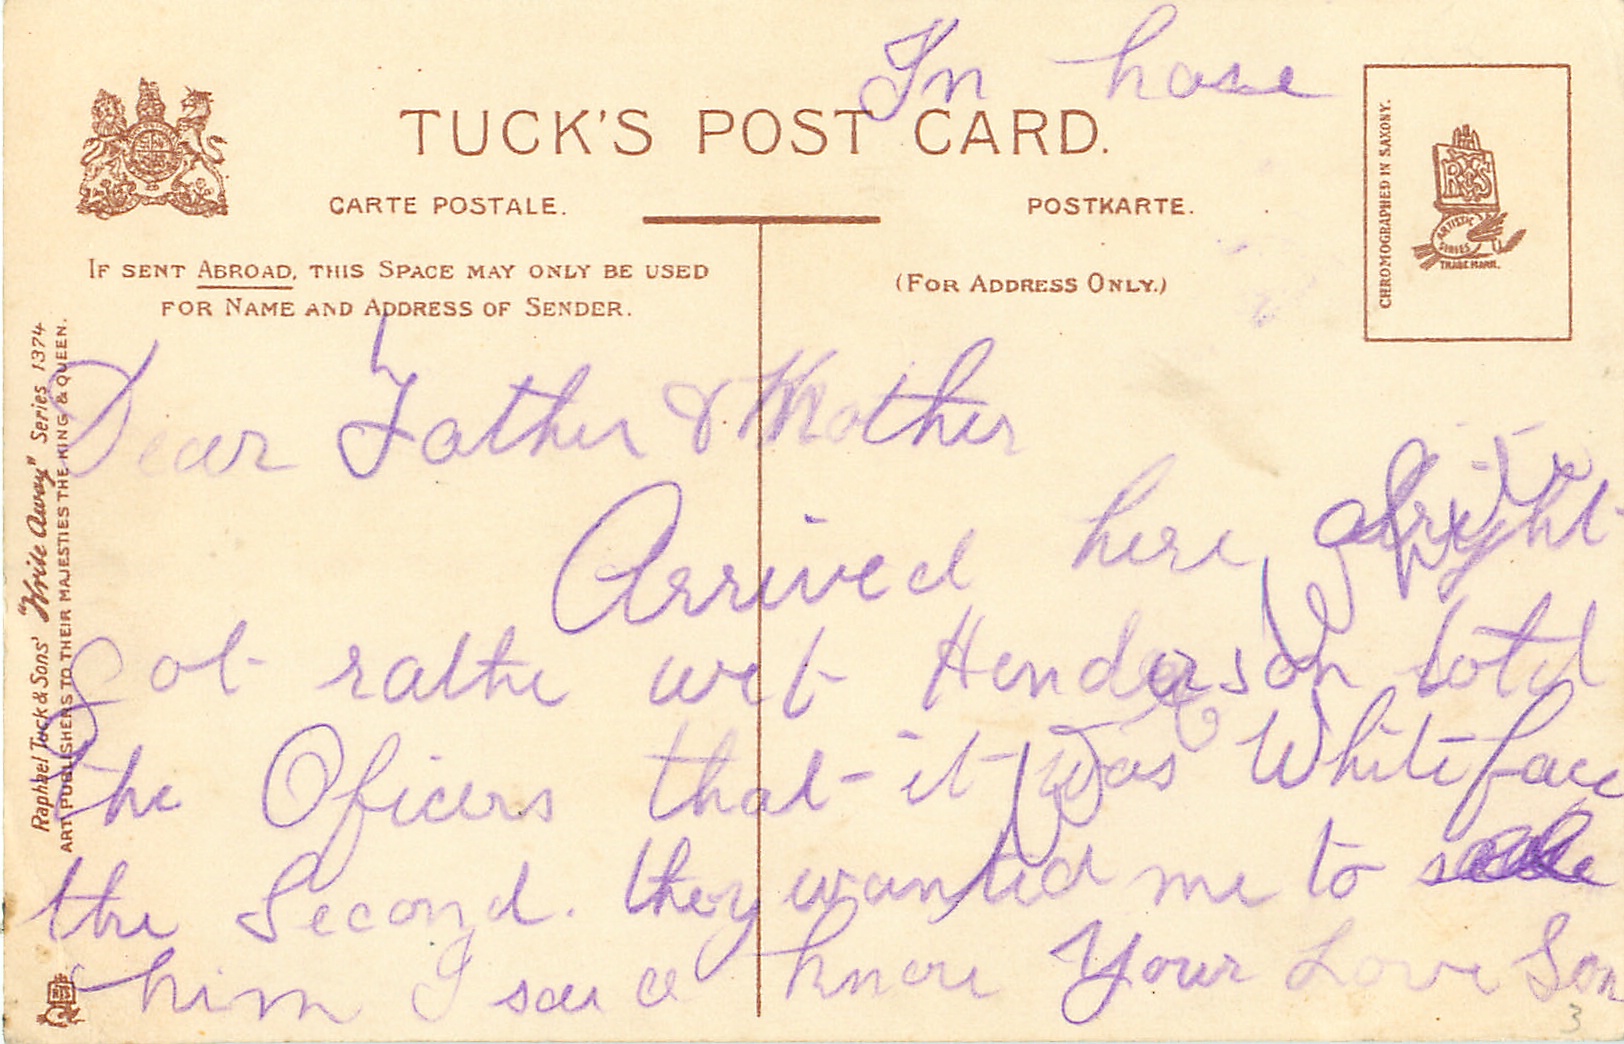 In hase
TUCK'S POST CARD.
CARTE POSTALE.
POSTKARTE.
IF SENT ABROAD, THIS SPACE MAY ONLY BE USED
FOR NAME AND ADDRESS OF SENDER.
(FOR ADDRESS ONLY.)
CHROMOGRAPHED IN SAXONY.
RTS
ARTISTIC
SERIES
TRADE MARK.
Raphael Tuck & Sons' "Write Away" Series 1374
ART PUBLISHERS TO THEIR MAJESTIES THE KING & QUEEN.
Dear Father & Mother
Arrived here alright
Got rathe wet Henderson totd
the Oficers that it was Whiteface
the Second. they wanted me to
him I said know Your Love Son
3